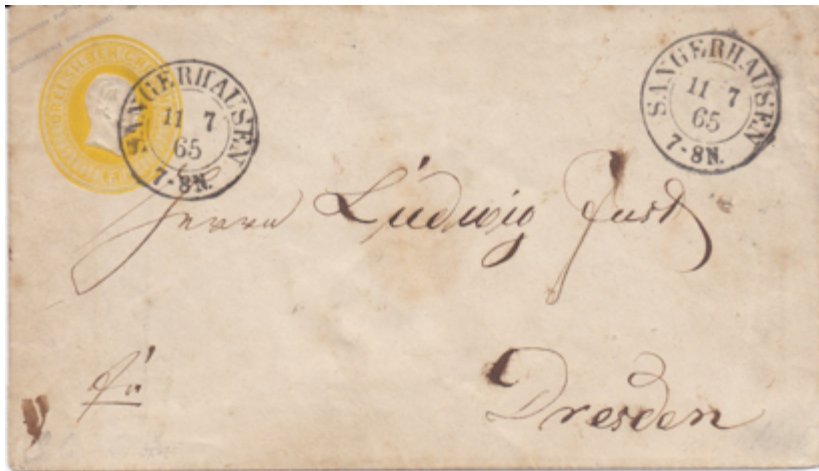 SANGERHAUSEN
11 7
65
7-8N.
SANGERHAUSEN
11 7
65
7-8N.
Herrn Ludwig
Dresden